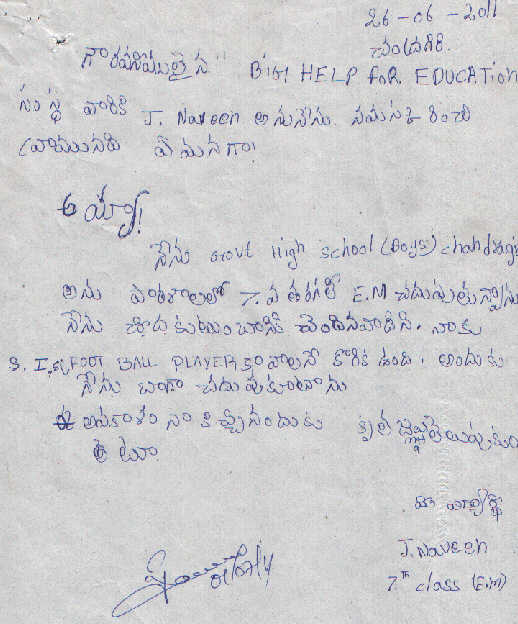 26-06-2011
చంద్రగిరి.
గౌరవనీయులైన "BIG HELP FOR EDUCATION
సంస్థ వారికి J. Naveen అనునేను నమస్కరించి
వ్రాయునది ఏమనగా!
అయ్యా!
నేను Govt High School (Boys) chandragiri
అను పాఠశాలలో 7.వ తరగతి E.M చదువుతున్నాను
నేను చెందినవాడిని. నాకు
S.I, FOOT BALL PLAYER కావాలనే కోరిక ఉంది. అందుకు
నేను బాగా చదువుకుంటాను
ఈ అవకాశం నాకిచ్చినందుకు కృతజ్ఞతలు
J. Naveen
7TH class (E.M)